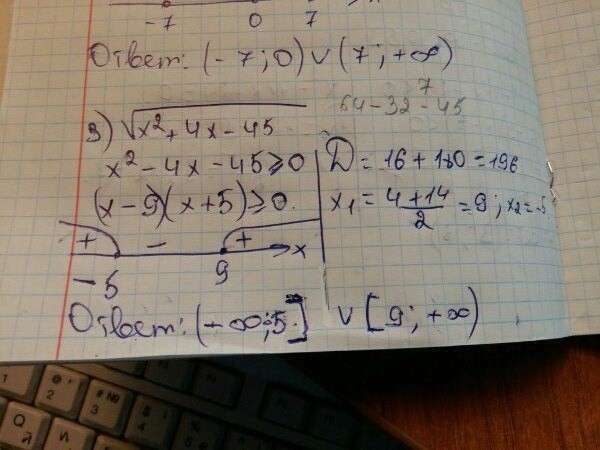 -7 0 7
Ответ: (-7; 0) ∨ (7; +∞)
64-32-45
7
3) √x²+4x-45
x²-4x-45≥0
(x-9)(x+5)≥0.
+ - + x
-5 9
D=16+180=196
x₁=(4+14)/2=9; x₂=-5
Ответ: (-∞; 5] ∨ [9; +∞)
Q Й
2
3